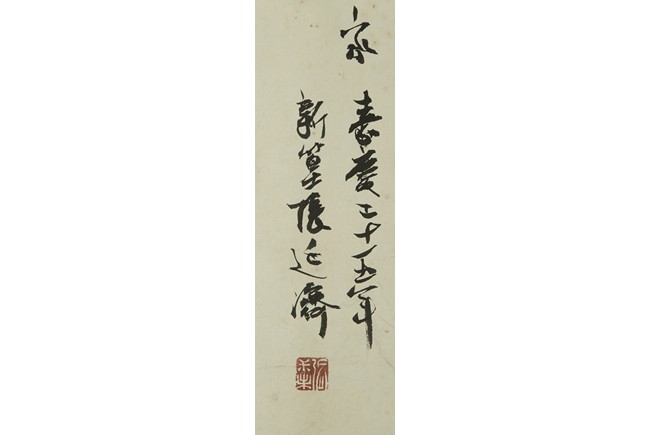 家　嘉慶二十五年
新篁張廷濟